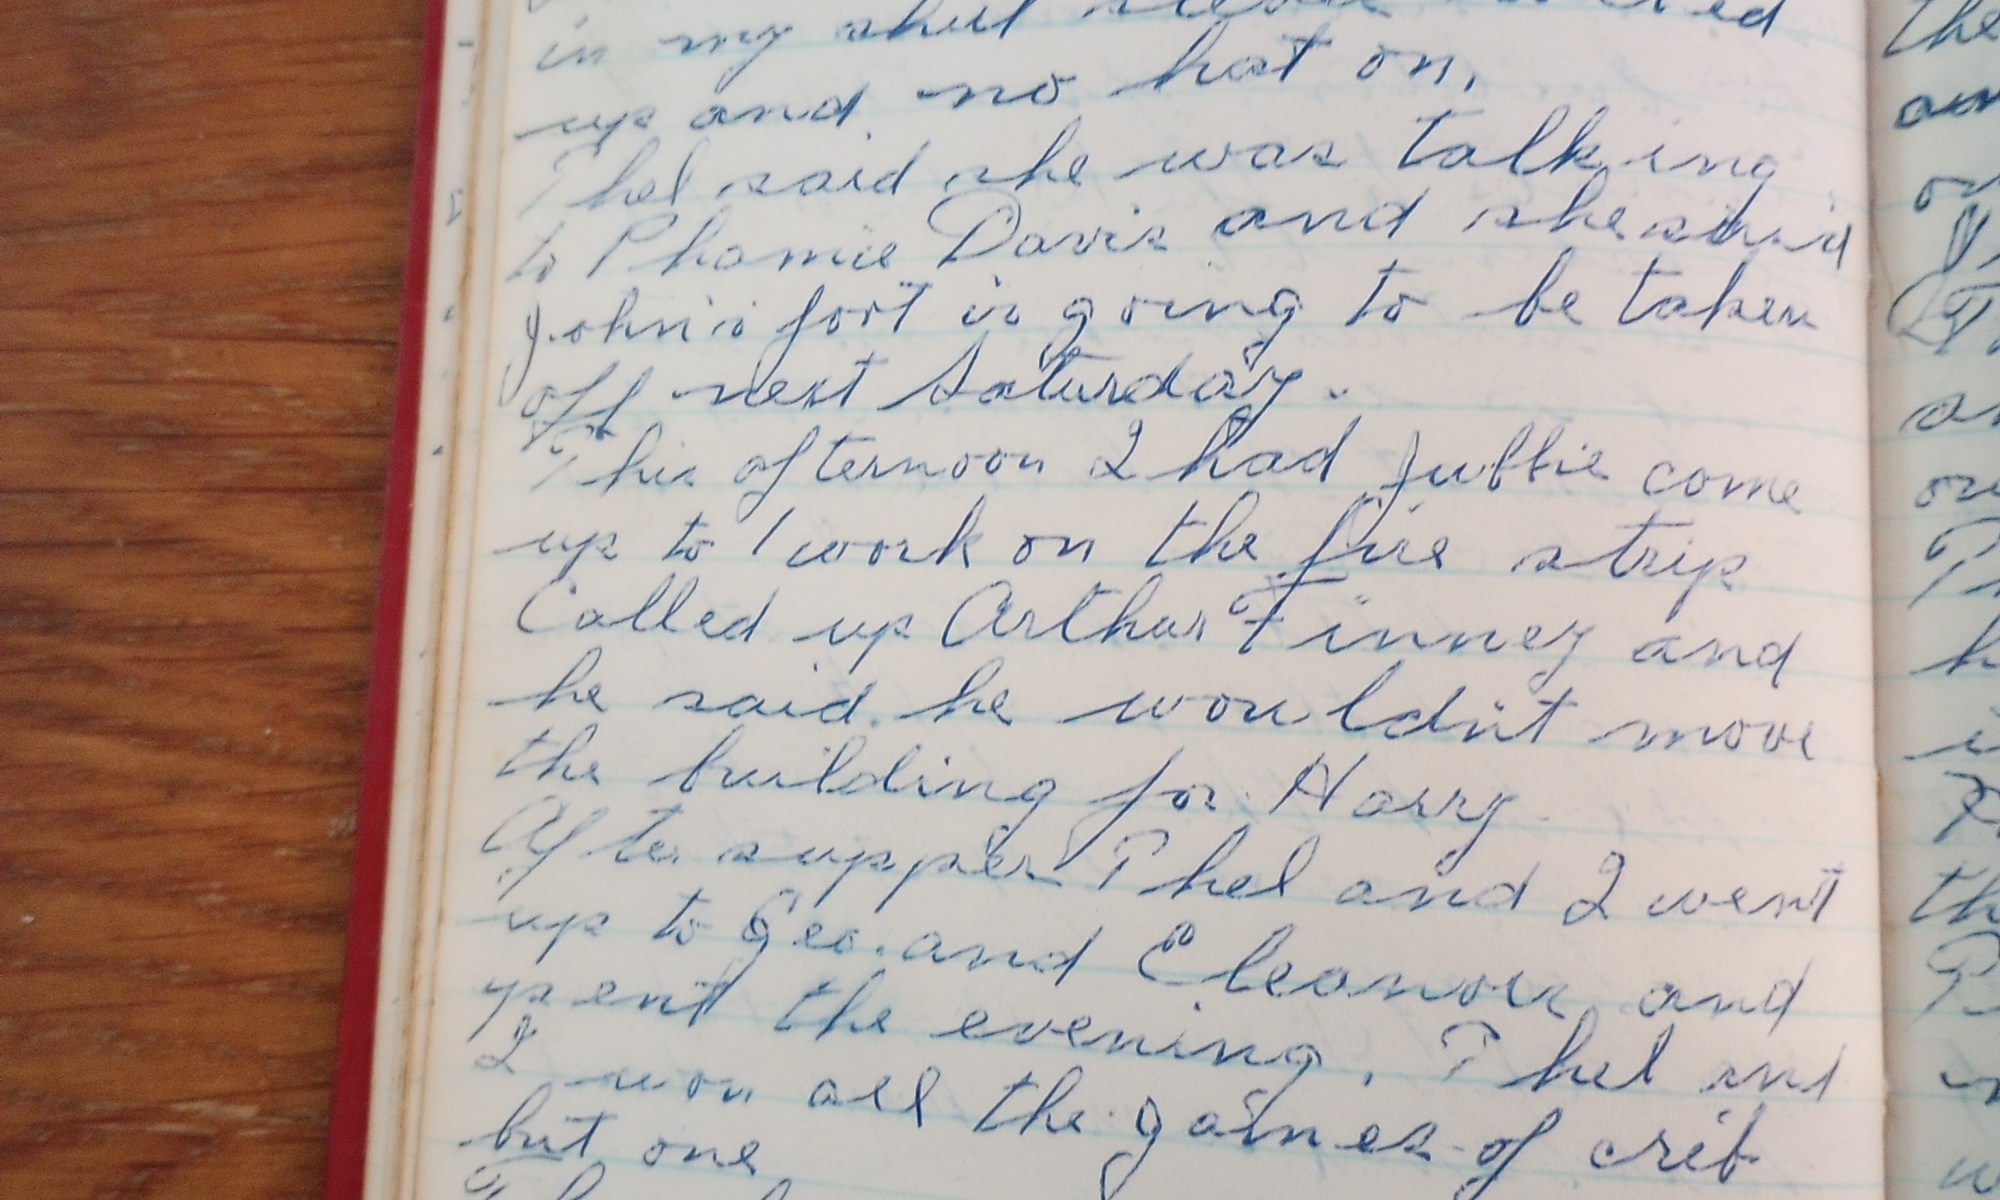 in my shirt sleeves rolled
up and no hat on.
Thel said she was talking
to Phamie Davis and she said
John's foot is going to be taken
off next Saturday.
This afternoon I had Jubbie come
up to work on the fire strip
Called up Arthur Finney and
he said he wouldn't move
the building for Harry
After supper Thel and I went
up to Geo. and Eleanor and
spent the evening. Thel and
I won all the games of crib
but one